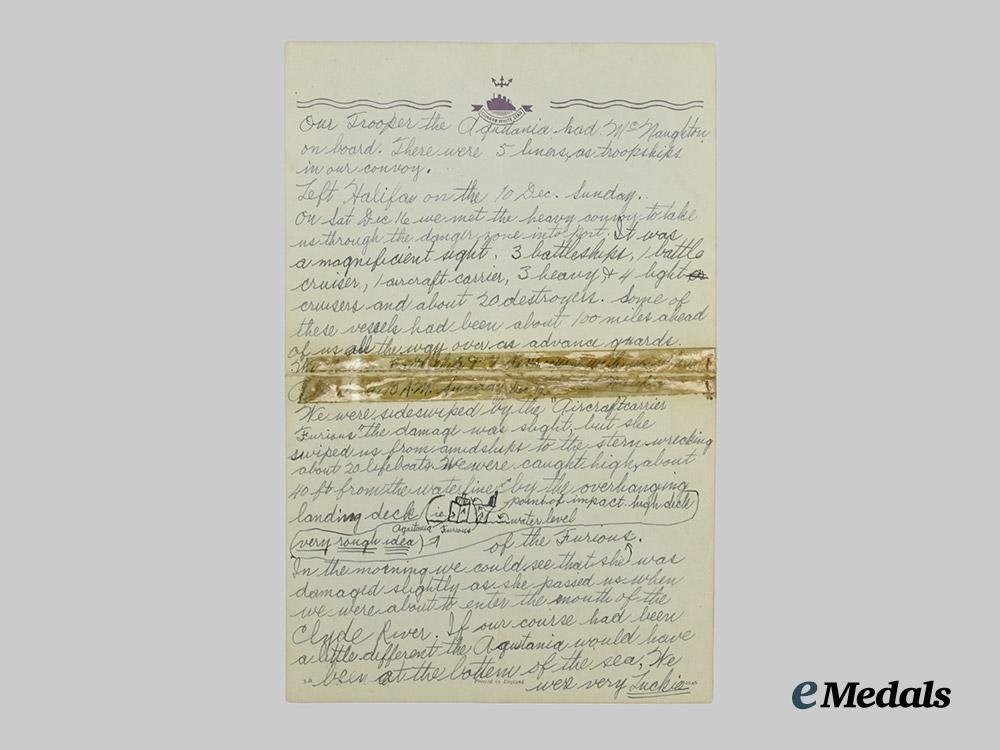 CUNARD WHITE STAR
Our Trooper the Aquitania had McNaughton
on board. There were 5 liners, as troopships
in our convoy.
Left Halifax on the 10 Dec. Sunday.
On Sat Dec 16 we met the heavy convoy to take
us through the danger zone into port. It was
a magnificient sight. 3 battleships, 1 battle
cruiser, 1 aircraft carrier, 3 heavy & 4 light
cruisers and about 20 destroyers. Some of
these vessels had been about 100 miles ahead
of us all the way over as advance guards.
A.M. Sunday
We were sideswiped by the "Aircraftcarrier
Furious" the damage was slight, but she
swiped us from amidships to the stern wrecking
about 20 lifeboats. We were caught high, about
40 ft from the waterline, by the overhanging
landing deck (ie. point of impact high deck
water level
Aquitania Furious
(very rough idea)
of the Furious.
In the morning we could see that she was
damaged slightly as she passed us when
we were about to enter the mouth of the
Clyde River. If our course had been
a little different the Aquitania would have
been at the bottem of the sea. We
were very Luckie
Printed in England
eMedals